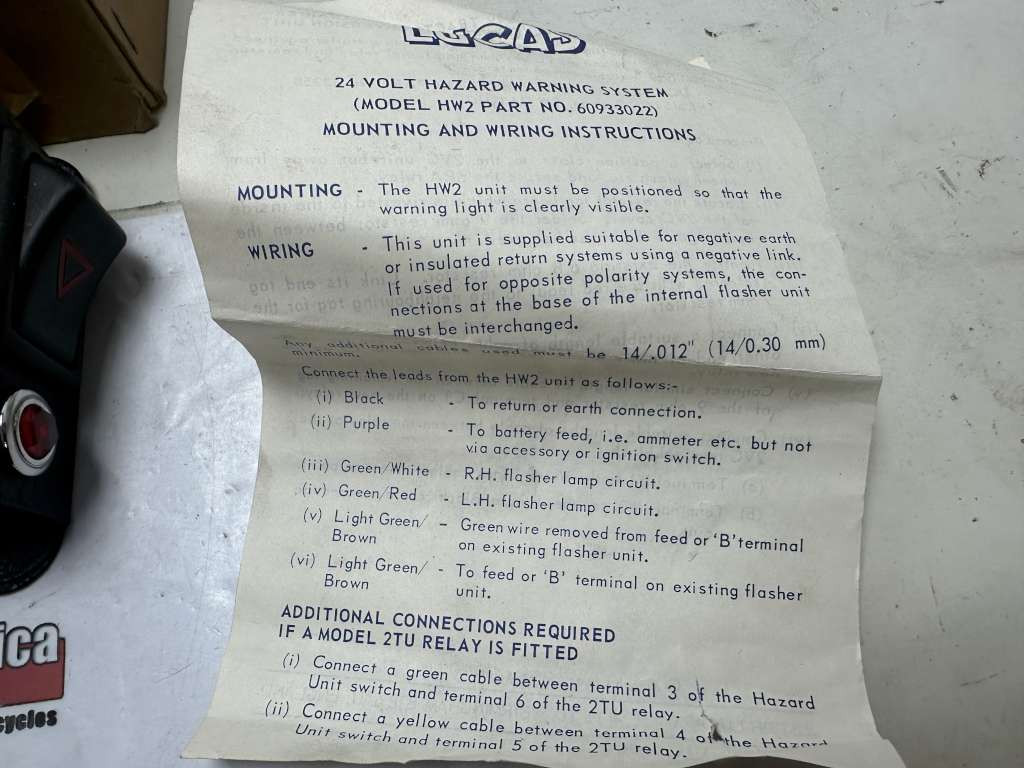 LUCAS
24 VOLT HAZARD WARNING SYSTEM
(MODEL HW2 PART NO. 60933022)
MOUNTING AND WIRING INSTRUCTIONS
MOUNTING - The HW2 unit must be positioned so that the
warning light is clearly visible.
WIRING - This unit is supplied suitable for negative earth
or insulated return systems using a negative link.
If used for opposite polarity systems, the con-
nections at the base of the internal flasher unit
must be interchanged.
Any additional cables used must be 14/.012" (14/0.30 mm)
minimum.
Connect the leads from the HW2 unit as follows:-
(i) Black - To return or earth connection.
(ii) Purple - To battery feed, i.e. ammeter etc. but not
via accessory or ignition switch.
(iii) Green/White - R.H. flasher lamp circuit.
(iv) Green/Red - L.H. flasher lamp circuit.
(v) Light Green/ - Green wire removed from feed or 'B' terminal
Brown on existing flasher unit.
(vi) Light Green/ - To feed or 'B' terminal on existing flasher
Brown unit.
ADDITIONAL CONNECTIONS REQUIRED
IF A MODEL 2TU RELAY IS FITTED
(i) Connect a green cable between terminal 3 of the Hazard
Unit switch and terminal 6 of the 2TU relay.
(ii) Connect a yellow cable between terminal 4 of the Hazard
Unit switch and terminal 5 of the 2TU relay.
ica
cycles